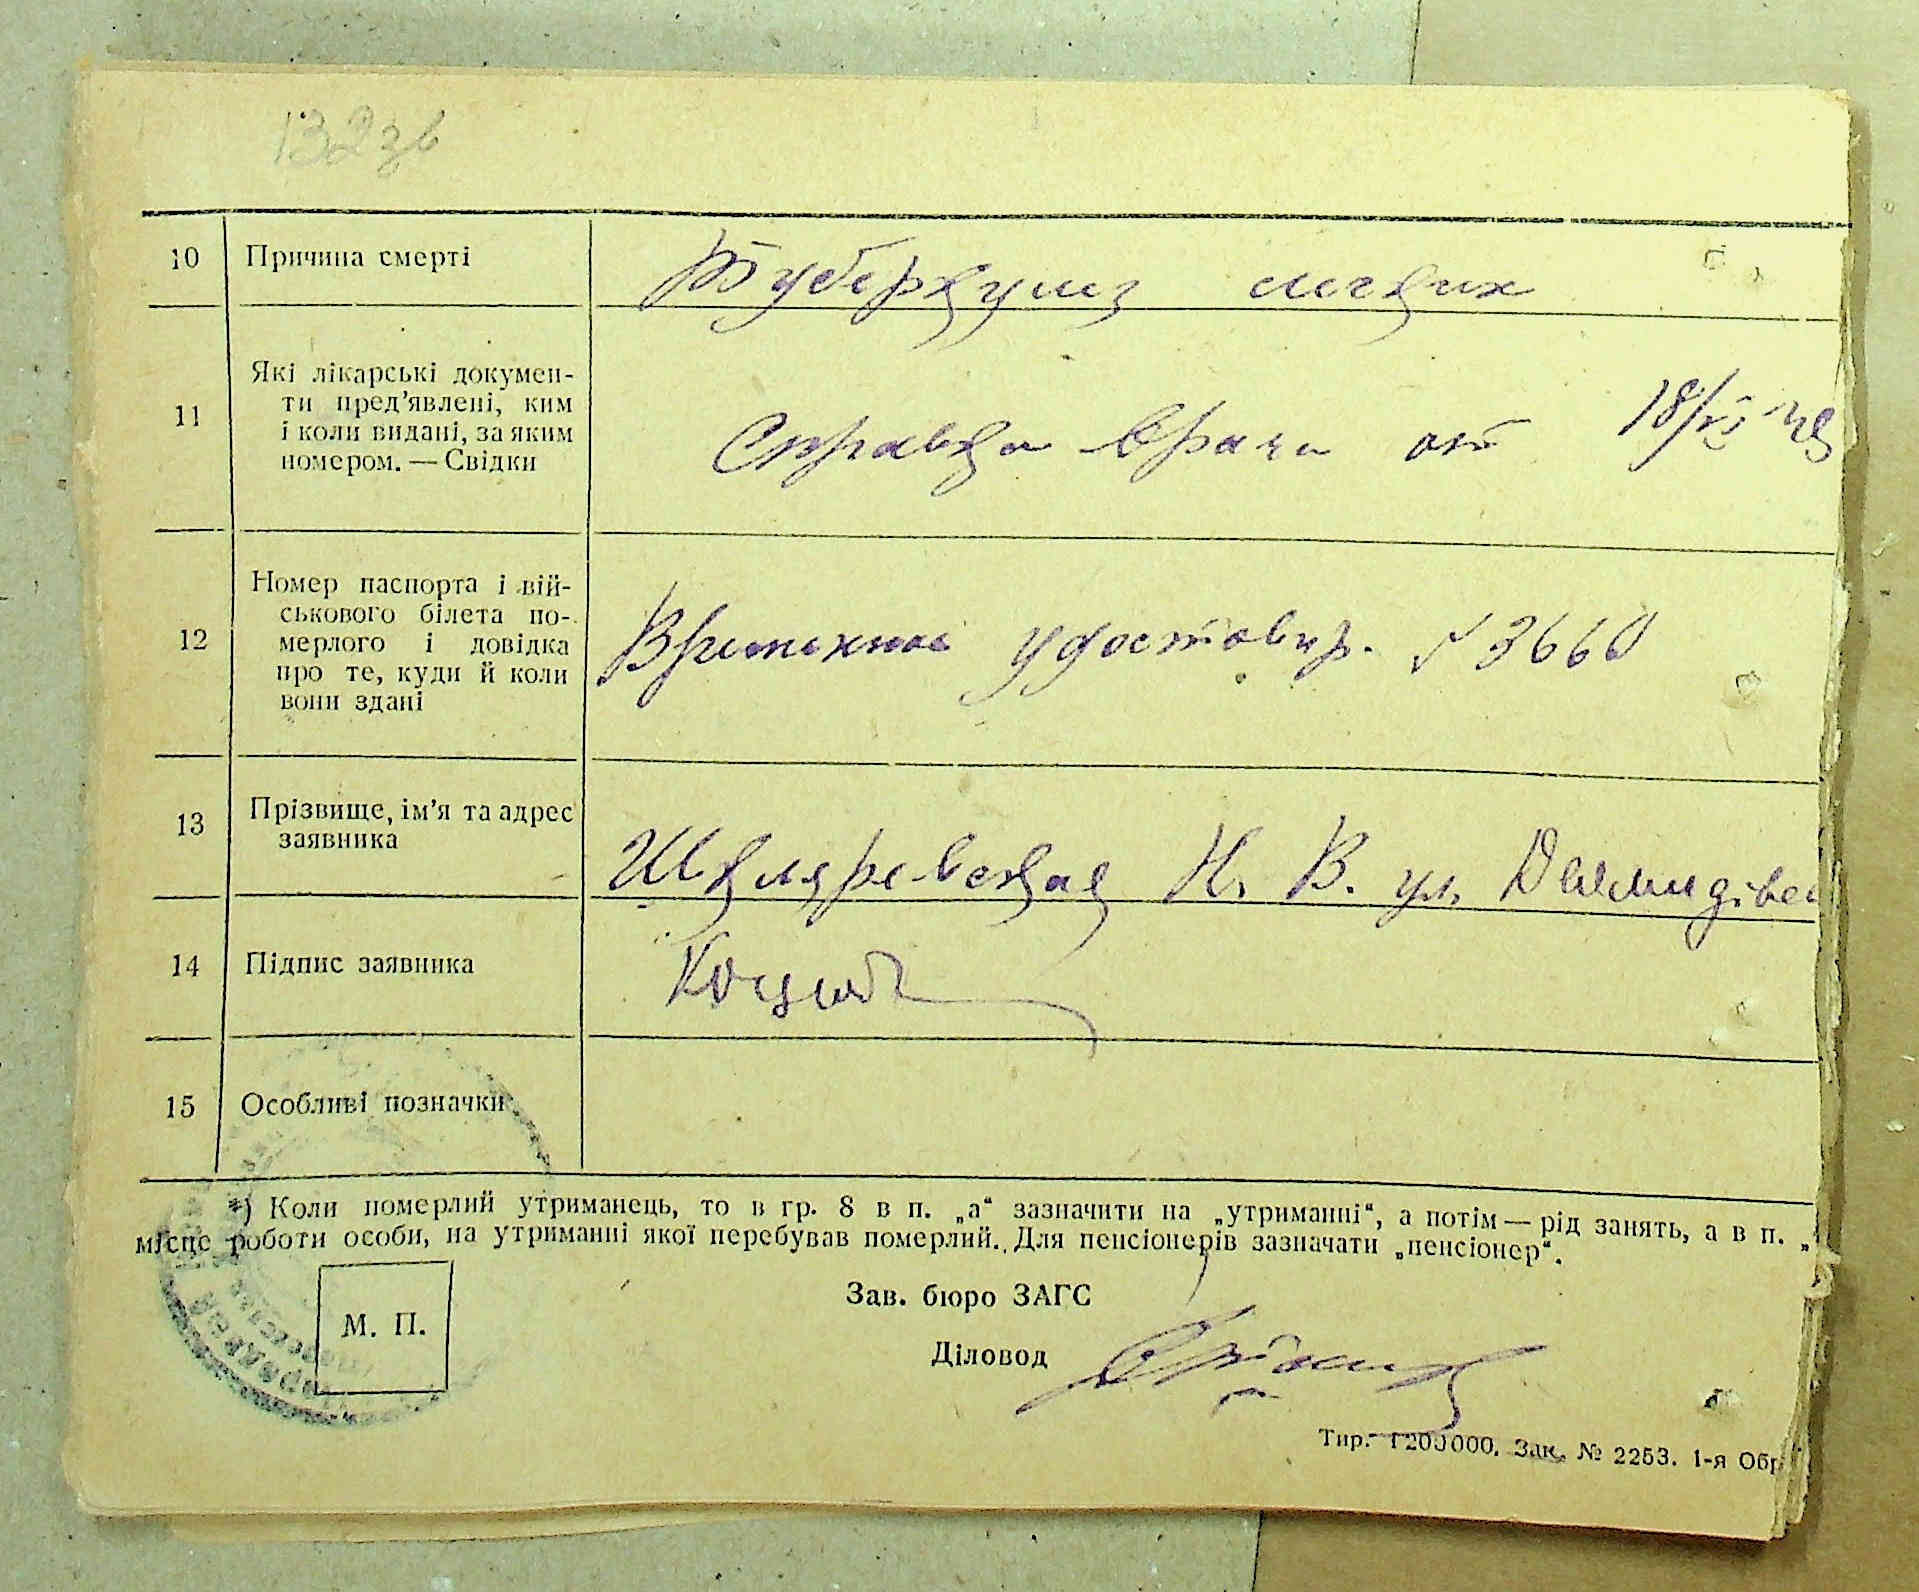 132зв
10 Причина смерті Туберкулез легких
11 Які лікарські докумен-
ти пред’явлені, ким
і коли видані, за яким
номером. — Свідки
Справка врача от 18/VI
12 Номер паспорта і вій-
ськового білета по-
мерлого і довідка
про те, куди й коли
вони здані
Временное удостовер. № 3660
13 Прізвище, ім’я та адрес
заявника
Шкляревская Н. В. ул.
14 Підпис заявника
15 Особливі позначки
*) Коли померлий утриманець, то в гр. 8 в п. „а“ зазначити на „утриманні“, а потім — рід занять, а в п. „
місце роботи особи, на утриманні якої перебував померлий. Для пенсіонерів зазначати „пенсіонер“.
Зав. бюро ЗАГС
М. П.
Діловод
Тир. 1200000. Зак. № 2253. 1-я Обр